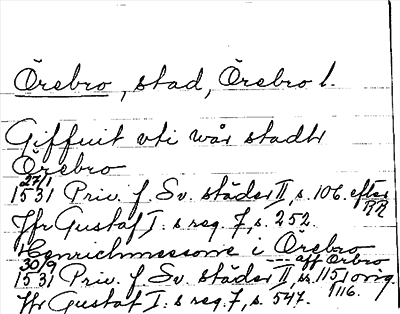 Örebro, stad, Örebro l.
Giffuit vti wår stadtt
Örebro
27/1
1531 Priv. f. Sv. städer II, s. 106. efter RR
Jfr Gustaf I:s reg. 7, s. 252.
Henrichmessone i Örebro
30/9 --- aff Örbro
1531 Priv. f. Sv. städer II, ss. 115, orig.
116.
Jfr Gustaf I:s reg. 7, s. 547.